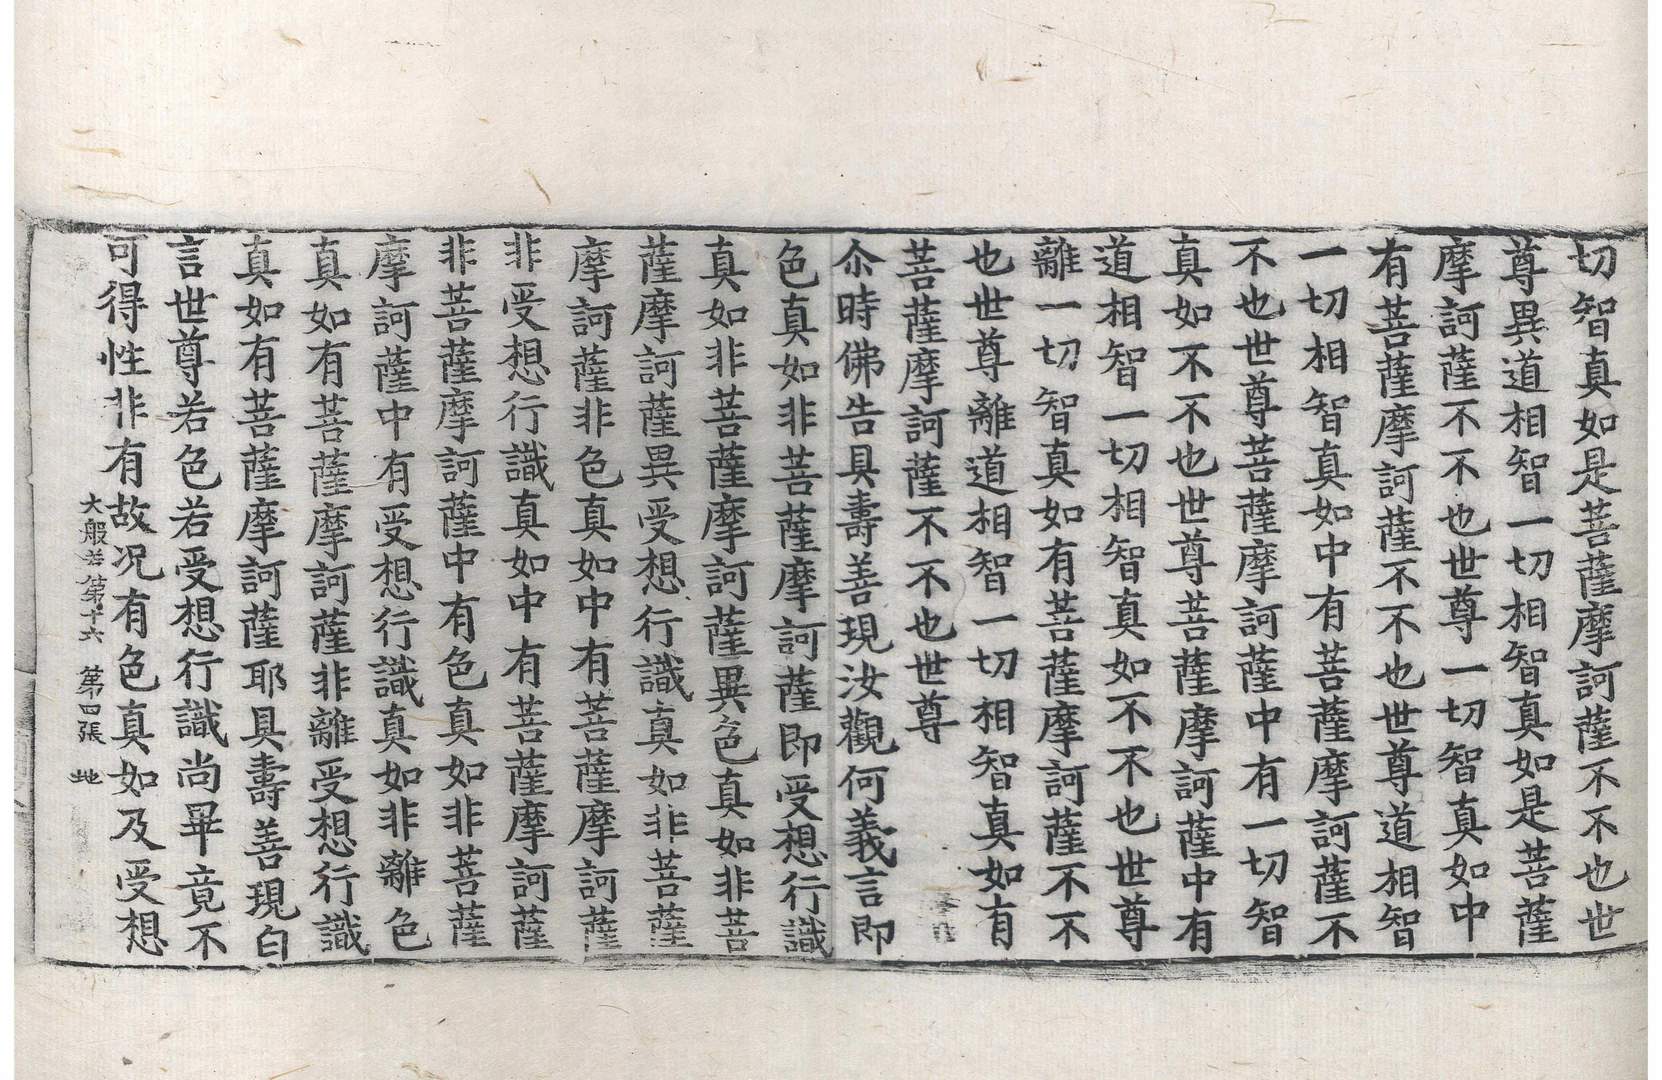 切智真如是菩薩摩訶薩不不也世
尊異道相智一切相智真如是菩薩
摩訶薩不不也世尊一切智真如中
有菩薩摩訶薩不不也世尊道相智
一切相智真如中有菩薩摩訶薩不
不也世尊菩薩摩訶薩中有一切智
真如不不也世尊菩薩摩訶薩中有
道相智一切相智真如不不也世尊
離一切智真如有菩薩摩訶薩不不
也世尊離道相智一切相智真如有
菩薩摩訶薩不不也世尊
尒時佛告具壽善現汝觀何義言即
色真如非菩薩摩訶薩即受想行識
真如非菩薩摩訶薩異色真如非菩
薩摩訶薩異受想行識真如非菩薩
摩訶薩非色真如中有菩薩摩訶薩
非受想行識真如中有菩薩摩訶薩
非菩薩摩訶薩中有色真如非菩薩
摩訶薩中有受想行識真如非離色
真如有菩薩摩訶薩非離受想行識
真如有菩薩摩訶薩耶具壽善現白
言世尊若色若受想行識尚畢竟不
可得性非有故况有色真如及受想
大般若第十六 第四張 地